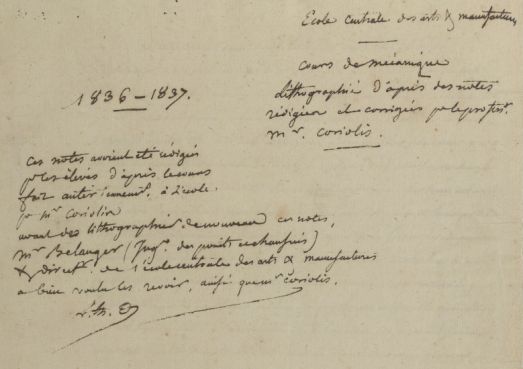 Ecole Centrale des arts & manufactures
Cours de mécanique
Lithographié d'après des notes
rédigées et corrigées p. le profess.r
Mr. Coriolis.
1836-1837.
Ces notes avoient été rédigées
p. les élèves d'après le cours
fait antérieurement, à l'école.
p. Mr Coriolis
avant de lithographier de nouveau ces notes,
Mr Belanger (Ing.r des ponts et chaussées)
& direct.r de l'école centrale des arts & manufactures
a bien voulu les revoir, ainsi que mr Coriolis.